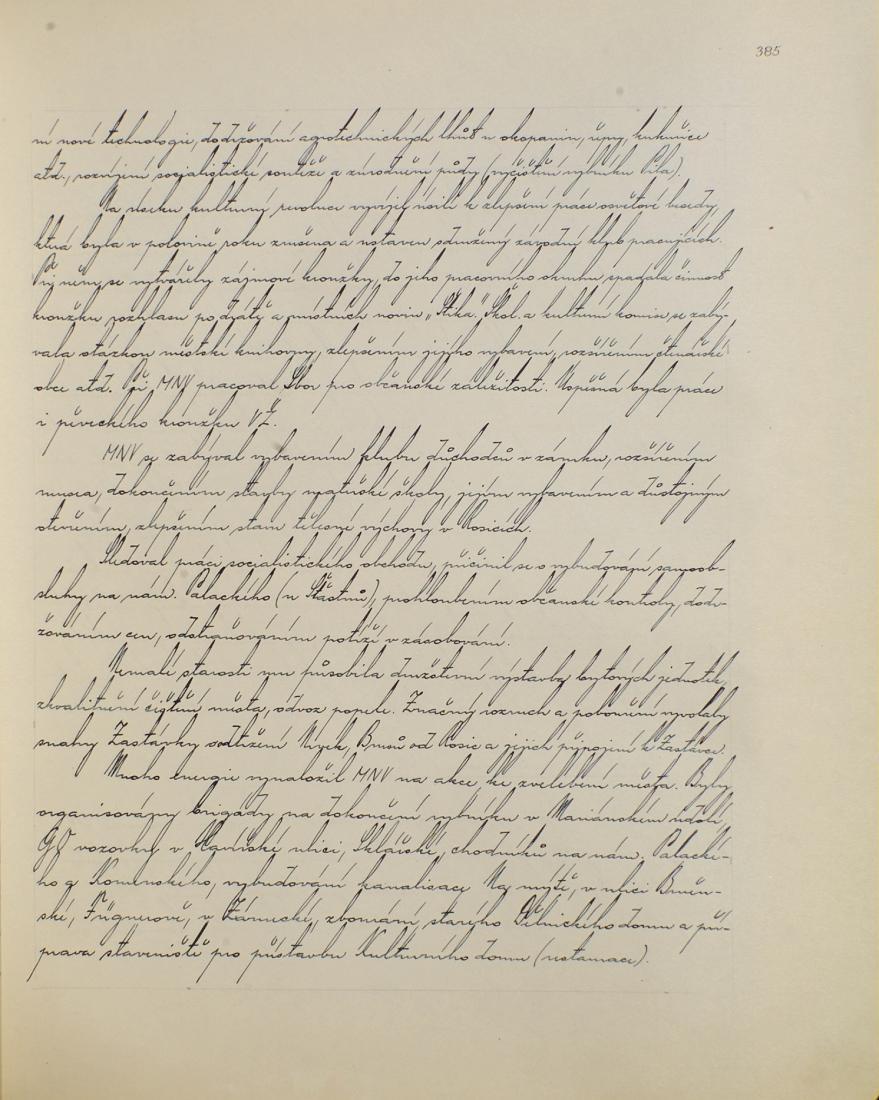 385
ní nové technologie, dodržování agrotechnických lhůt u okopanin, řepy, kukuřice
atd., rozvíjení socialistické soutěže a zúrodnění půdy (vyčištění rybníku Pila).
Na úseku kulturný revoluce vyvíjel úsilí k zlepšení práce osvětové besedy,
která byla v polovině roku zrušena a ustaven sdružený závodní klub pracujících.
Při něm se vytvářely zájmové kroužky, do jeho pracovního okruhu spadala činnost
kroužku rozhlasu po drátě a místních novin „Štika.” Škol. a kulturní komise se zabý-
vala otázkou městské knihovny, zlepšením jejího vybavení, rozšířením čtenářské
obce atd. Při MNV pracoval Sbor pro občanské záležitosti. Úspěšná byla práce
i pěveckého kroužku VŽ.
MNV se zabýval vybavením klubu důchodců v zámku, rozšířením
musea, dokončením stavby mateřské školy, jejím vybavením a důstojným
otevřením, zlepšením stavu tělesné výchovy v Rosicích.
Sledoval práci socialistického obchodu, přičinil se o vybudování samoob-
sluhy na nám. Palackého (u Šťastnů), prohloubením občanské kontroly, dodr-
žováním cen, odstraňováním potíží v zásobování.
Nemalé starosti mu působila družstevní výstavba bytových jednotek,
zkvalitnění čištění města, odvoz popele. Značný rozruch a pobouření vyvolaly
snahy Zastávky o odtržení od Rosic a jejich připojení k Zastávce.
Mnoho energie vynaložil MNV na akce ke zvelebení města. Byly
organisovány brigády na dokončení rybníku v Mariánském údolí,
GO vozovky v Havířské ulici, Sklářské, chodníků na nám. Palacké-
ho a Komenského, vybudování kanalisace Na mýtě, v ulici Brněn-
ské, Fügnerově, v Zámecké, zbourání starého Dělnického domu a pří-
prava staveniště pro přístavbu Kulturního domu (restaurace).